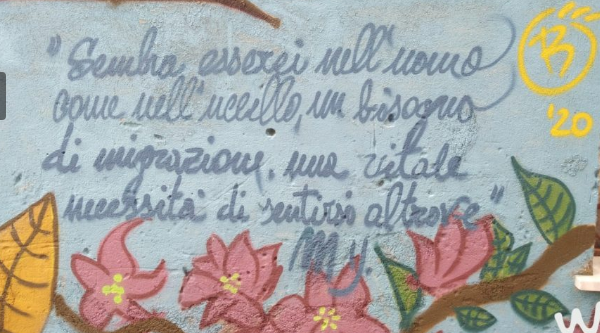 "Sembra esserci nell'uomo
come nell'uccello, un bisogno
di migrazione, una vitale
necessità di sentirsi altrove"
M.Y.
B
'20
W